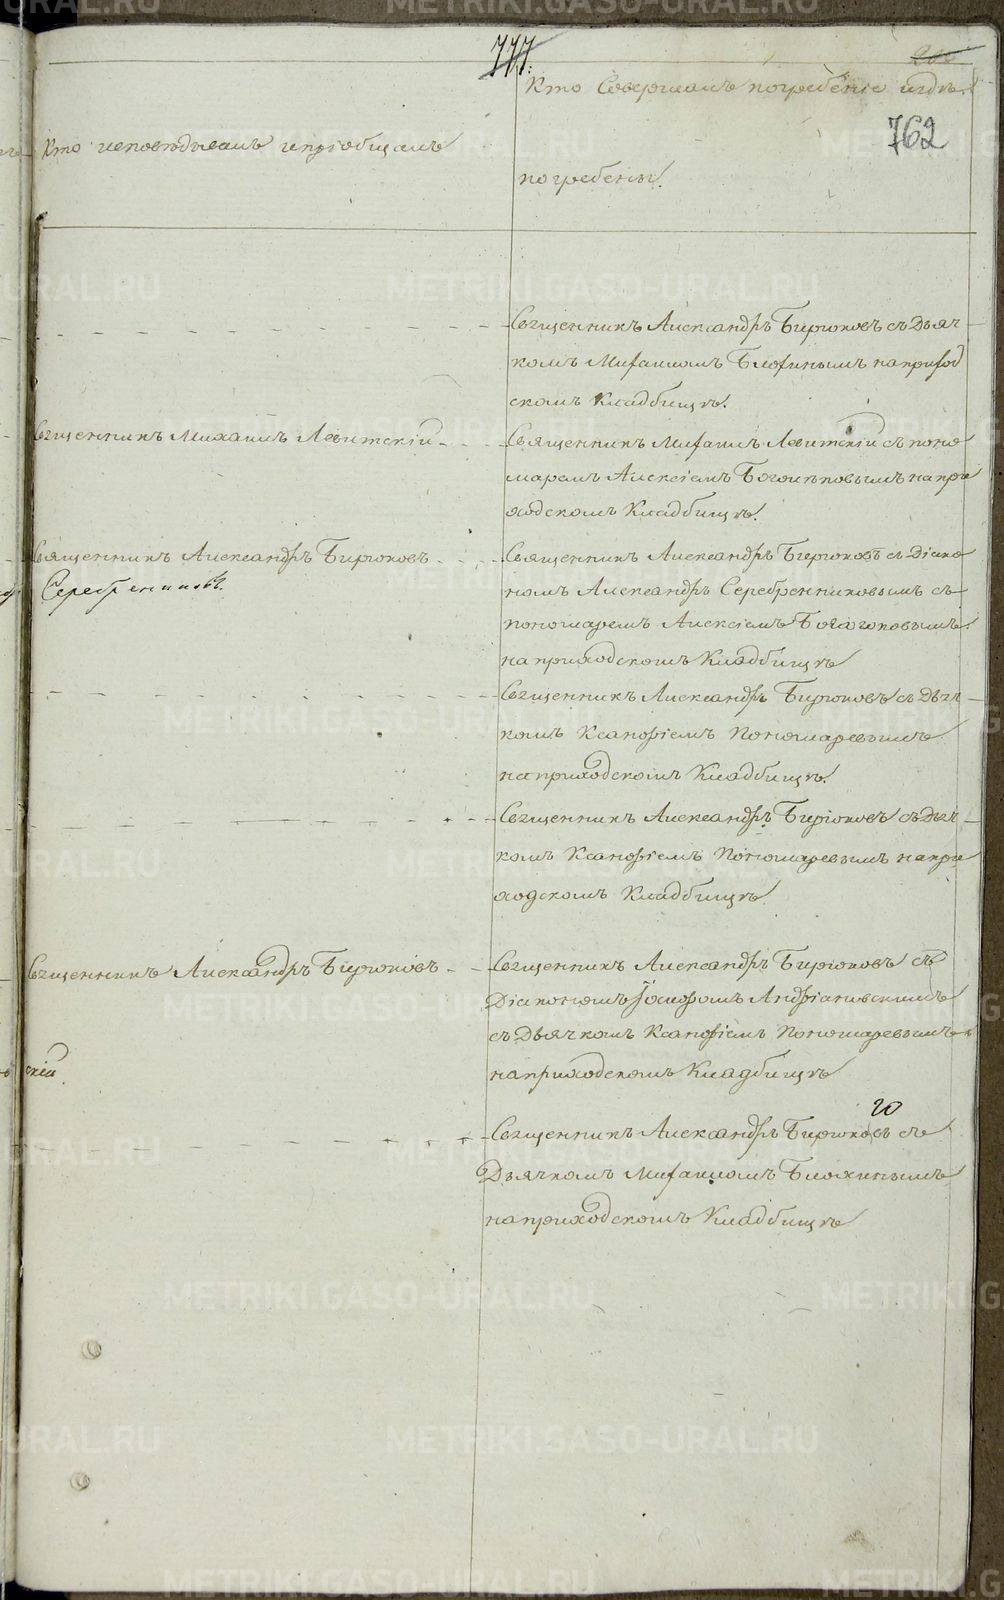 777.
762
Кто исповѣдывалъ и пріобщалъ
Кто Совершалъ погребеніе и гдѣ
погребены.
Священникъ Александръ Бирюковъ съ Дьяч
комъ Михаиломъ Блохинымъ на приход
скомъ Кладбищѣ.
Священникъ Михаилъ Левитскій
Священникъ Михаилъ Левитскій съ поно
маремъ Алексіемъ на при
ходскомъ Кладбищѣ.
Священникъ Александръ Бирюковъ
Серебренниковъ.
Священникъ Александръ Бирюковъ съ Діако
номъ Александръ Серебренниковымъ съ
пономаремъ Алексіемъ
на приходскомъ Кладбищѣ
Священникъ Александръ Бирюковъ съ Дьяч
комъ Ксанфіемъ Пономаревымъ
на приходскомъ Кладбищѣ.
Священникъ Александръ Бирюковъ съ Дьяч
комъ Ксанфіемъ Пономаревымъ на при
ходскомъ Кладбищѣ
Священникъ Александръ Бирюковъ
скій
Священникъ Александръ Бирюковъ съ
Діакономъ Іосифомъ Андріановскимъ
съ Дьячкомъ Ксанфіемъ Пономаревымъ
на приходскомъ Кладбищѣ
Священникъ Александръ Бирюковъ съ
Дьячкомъ Михаиломъ Блохинымъ
на приходскомъ Кладбищѣ
METRIKI.GASO-URAL.RU